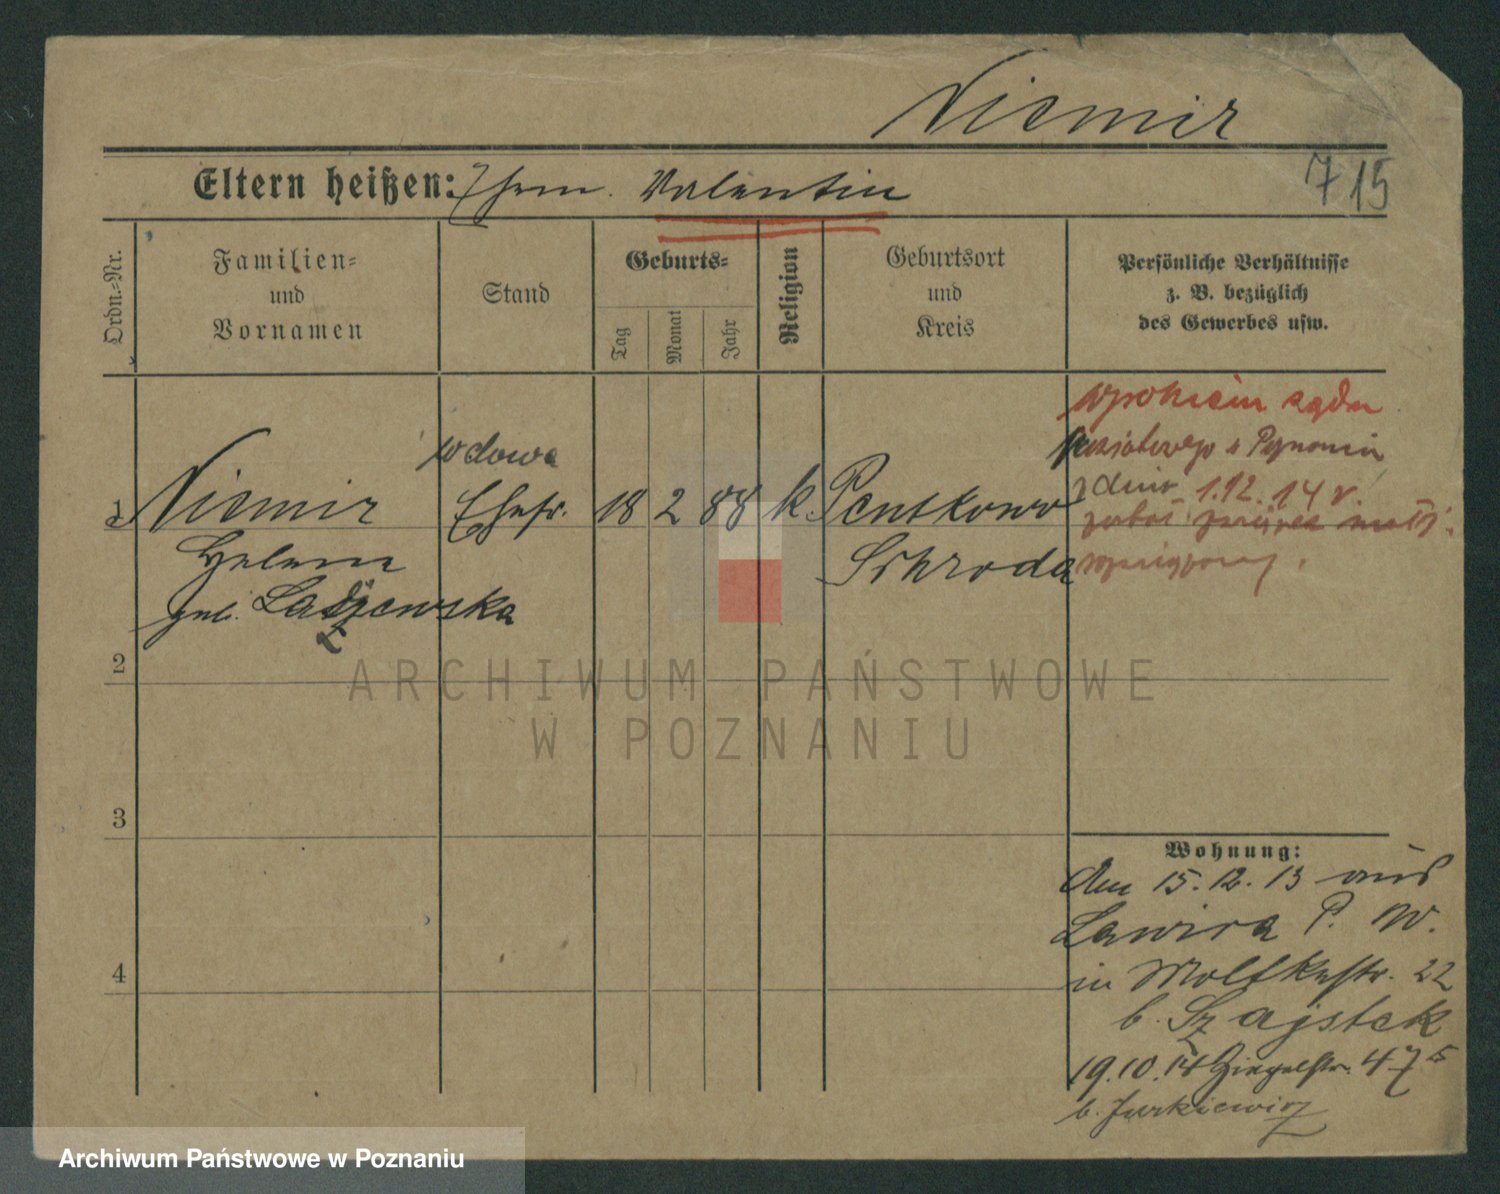 Niemir
715
Eltern heißen: Ehem. Valentin
Ordn.-Nr.
Familien-
und
Vornamen
Stand
Geburts-
Tag
Monat
Jahr
Religion
Geburtsort
und
Kreis
Persönliche Verhältnisse
z. B. bezüglich
des Gewerbes usw.
wdowa
1 Niemir Ehefr. 18 2 88 k. Pentkowo
Helene Schroda
geb.
sądu
z dnia 1.12.14 r.
2
3
4
Wohnung:
den 15.12.13 aus
Lawica P. W.
in Moltkestr. 22
b. Szajstek
19.10.14 Ziegelstr. 47
b. Jurkiewicz
ARCHIWUM PAŃSTWOWE
W POZNANIU
Archiwum Państwowe w Poznaniu